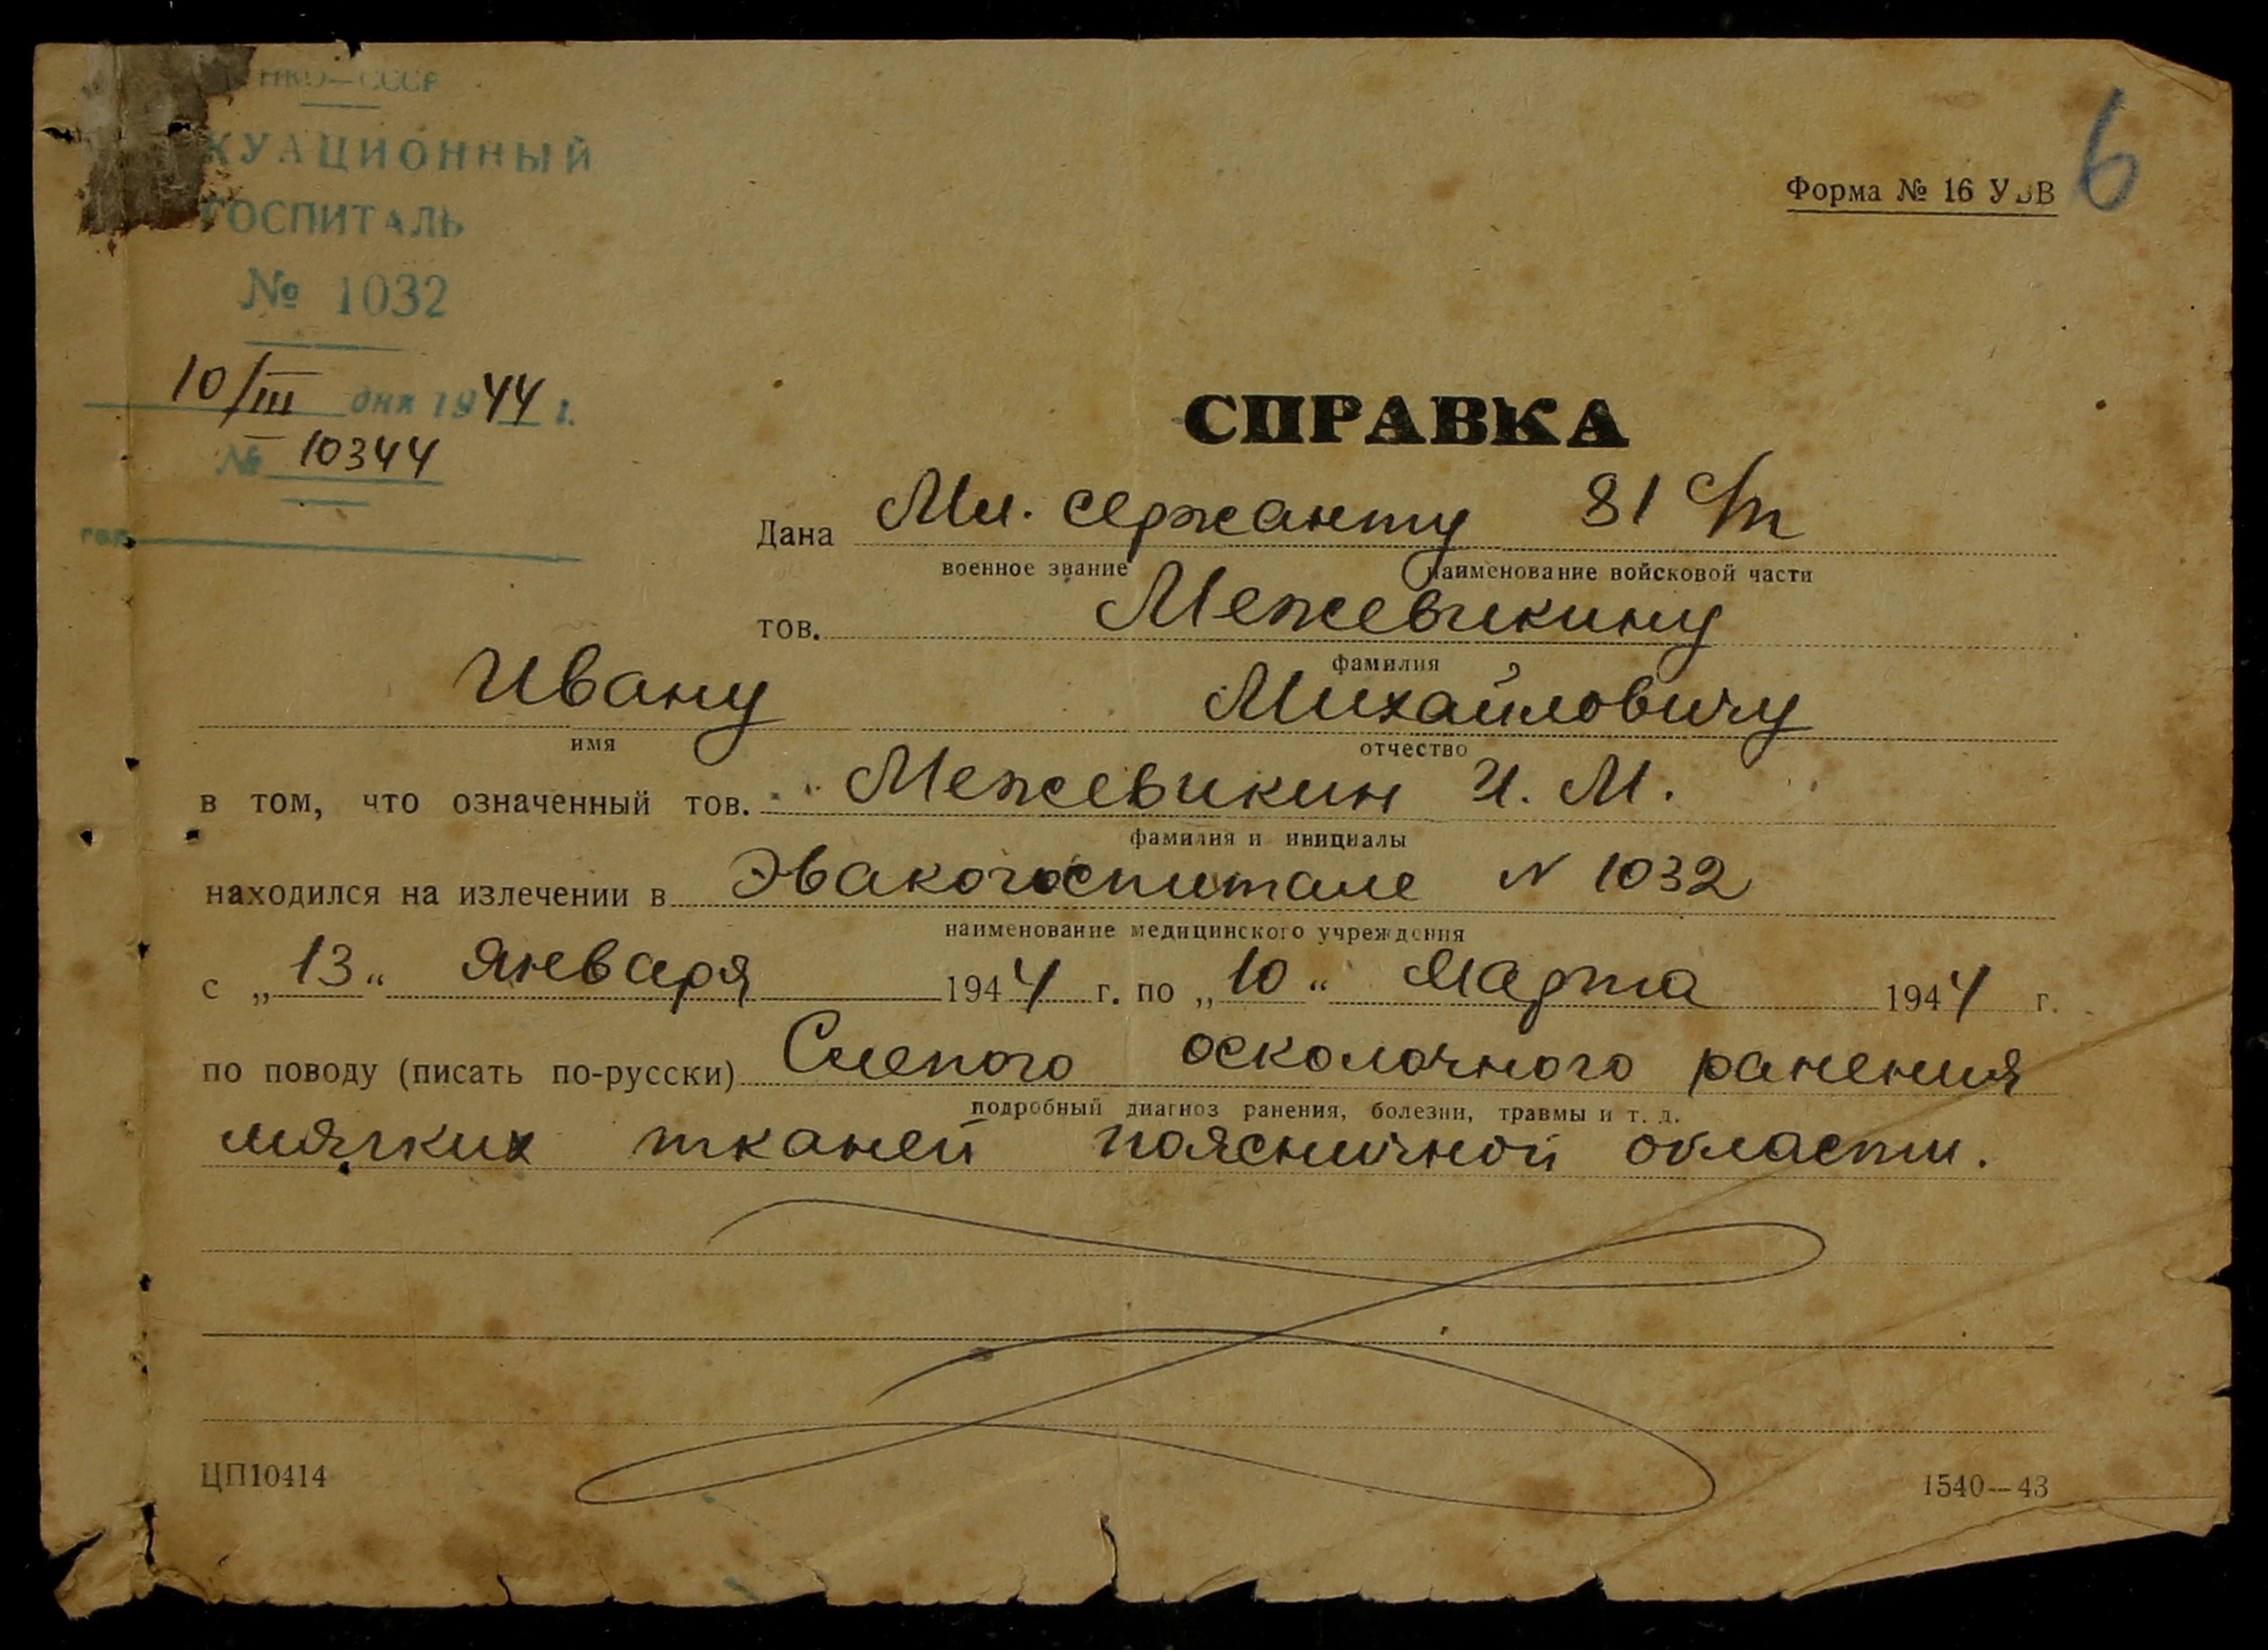 НКО—СССР
КУАЦИОННЫЙ
ГОСПИТАЛЬ
№ 1032
10/III дня 1944 г.
№ 10344
гор.
6
Форма № 16 УВВ
СПРАВКА
Дана Мл. сержанту 81
военное звание наименование войсковой части
тов. Межевикину
фамилия
Ивану Михайловичу
имя отчество
в том, что означенный тов. Межевикин И. М.
фамилия и инициалы
находился на излечении в Эвакогоспитале N 1032
наименование медицинского учреждения
с „13“ Января 1944 г. по „10“ Марта 1944 г.
по поводу (писать по-русски) Слепого осколочного ранения
подробный диагноз ранения, болезни, травмы и т. д.
мягких тканей поясничной области.
ЦП10414
1540—43